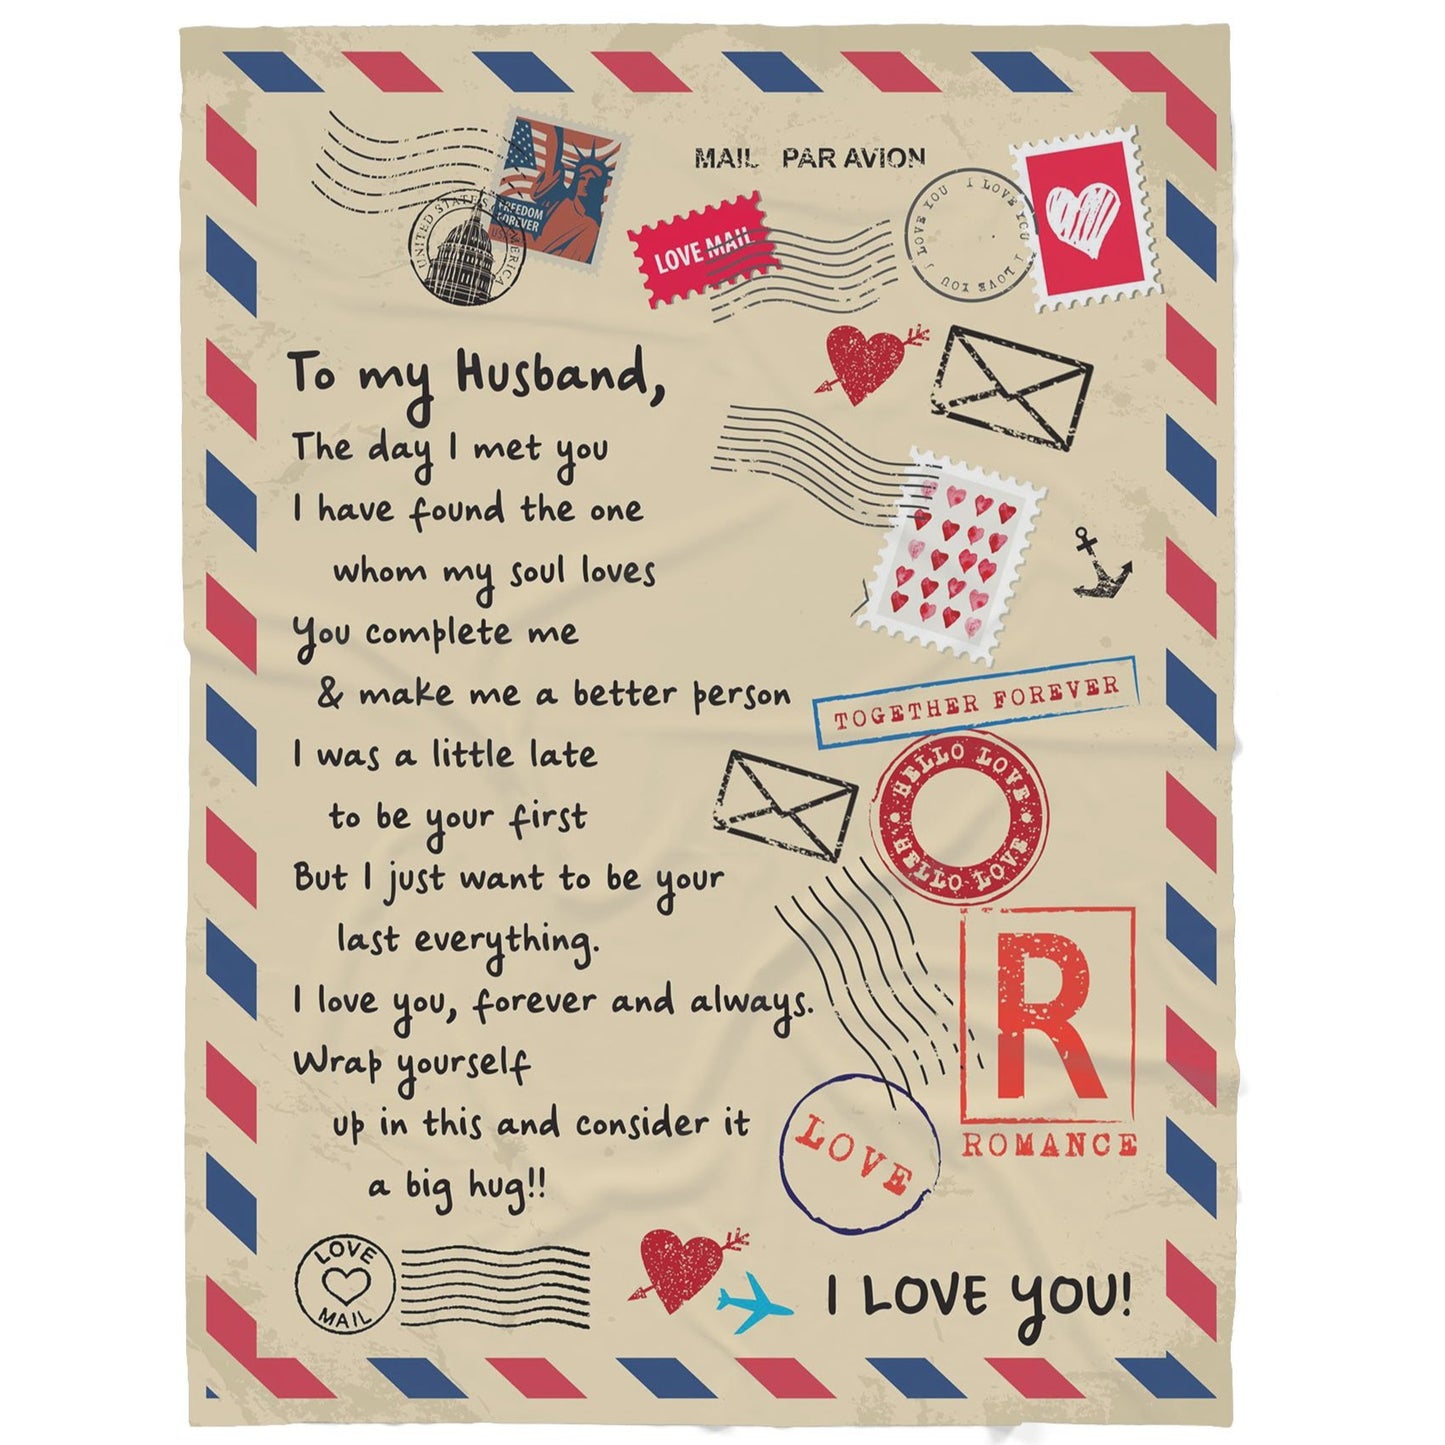 MAIL PAR AVION
UNITED STATES AMERICA
FREEDOM
FOREVER
LOVE MAIL
I LOVE YOU I LOVE YOU I LOVE YOU
To my Husband,
The day I met you
I have found the one
whom my soul loves
You complete me
& make me a better person
I was a little late
to be your first
But I just want to be your
last everything.
I love you, forever and always.
Wrap yourself
up in this and consider it
a big hug!!
TOGETHER FOREVER
HELLO LOVE
HELLO LOVE
R
ROMANCE
LOVE
LOVE
MAIL
I LOVE YOU!